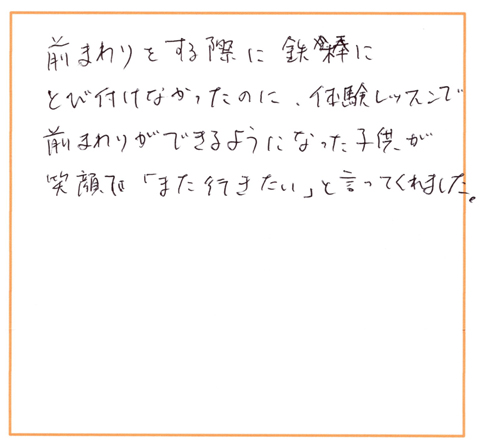 前まわりをする際に鉄棒に
とび付けなかったのに、体験レッスンで
前まわりができるようになった子供が
笑顔で「また行きたい」と言ってくれました。